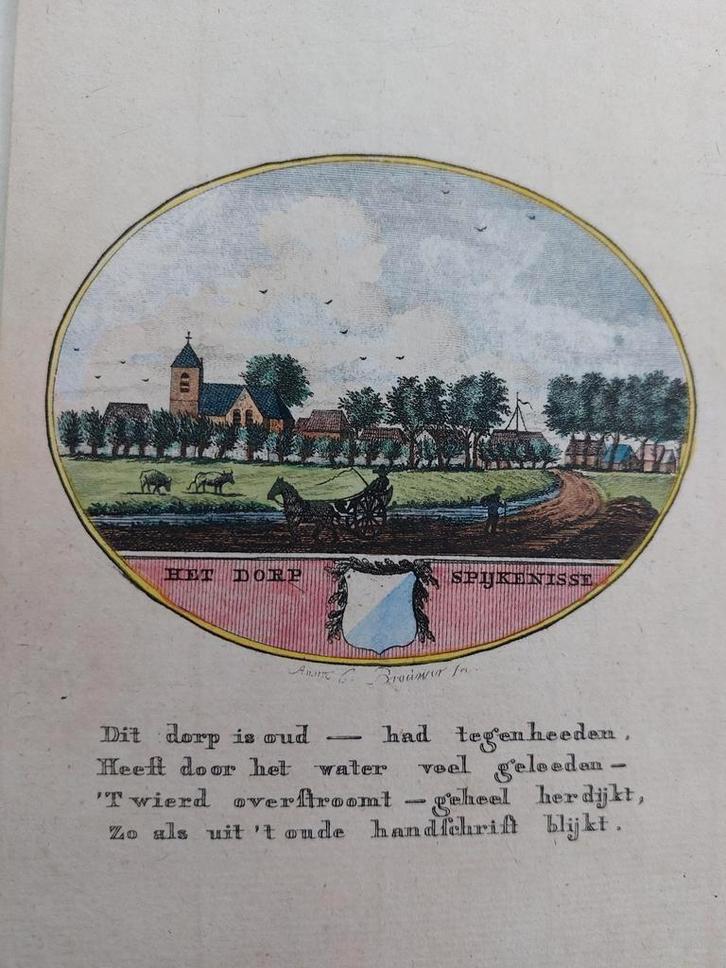 HET DORP SPIJKENISSE
Anna C. Brouwer fe.
Dit dorp is oud — had tegenheeden,
Heeft door het water veel geleeden —
'T wierd overſtroomt — geheel herdijkt,
Zo als uit 't oude handſchrift blijkt.